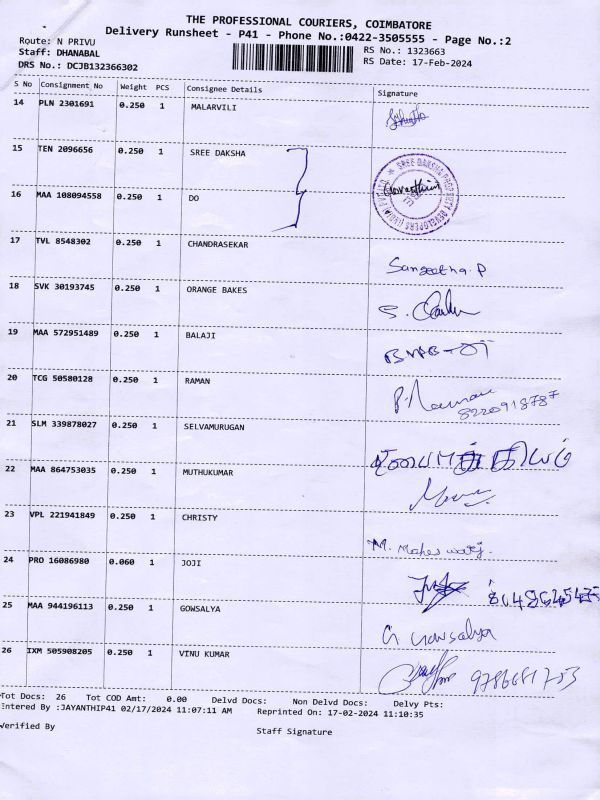 THE PROFESSIONAL COURIERS, COIMBATORE
Delivery Runsheet - P41 - Phone No.:0422-3505555 - Page No.:2
Route: N PRIVU RS No.: 1323663
Staff: DHANABAL RS Date: 17-Feb-2024
DRS No.: DCJB132366302
S No Consignment No Weight PCS Consignee Details Signature
14 PLN 2301691 0.250 1 MALARVILI
15 TEN 2096656 0.250 1 SREE DAKSHA
SREE DAKSHA PROPERTY DEVELOPERS (INDIA) PVT LTD
16 MAA 108094558 0.250 1 DO
17 TVL 8548302 0.250 1 CHANDRASEKAR Sangeetha.P
18 SVK 30193745 0.250 1 ORANGE BAKES
19 MAA 572951489 0.250 1 BALAJI
20 TCG 50580128 0.250 1 RAMAN P. Raman
8220918787
21 SLM 339878027 0.250 1 SELVAMURUGAN
22 MAA 864753035 0.250 1 MUTHUKUMAR
23 VPL 221941849 0.250 1 CHRISTY M. Maheswari.
24 PRO 16086980 0.060 1 JOJI
25 MAA 944196113 0.250 1 GOWSALYA G Gowsalya
26 IXM 505908205 0.250 1 VINU KUMAR 9786681753
Tot Docs: 26 Tot COD Amt: 0.00 Delvd Docs: Non Delvd Docs: Delvy Pts:
Entered By :JAYANTHIP41 02/17/2024 11:07:11 AM Reprinted On: 17-02-2024 11:10:35
Verified By
Staff Signature